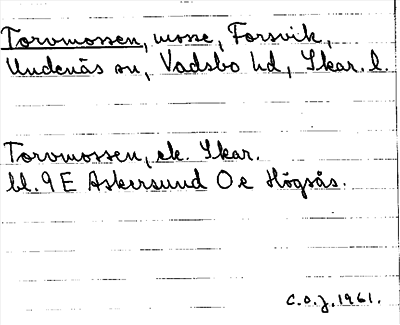 Torvmossen, mosse, Forsvik,
Undenäs sn, Vadsbo hd, Skar. l.
Torvmossen, ek. Skar.
bl. 9 E Askersund O e Högsås.
C.O.J. 1961.